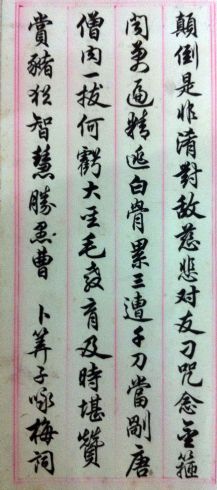 顛倒是非淆對敵慈悲对友刁咒念金箍
闻萬遍精逃白骨累三遭千刀當剮唐
僧肉一拔何虧大圣毛教育及時堪贊
賞豬犹智慧勝愚曹 卜算子咏梅词